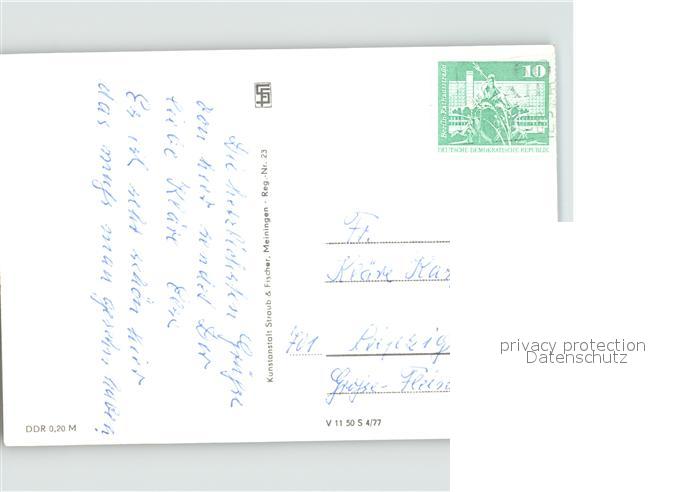 Die herzlichsten Grüße
von hier sendet Dir
liebe Kläre
Es ist sehr schön hier
das muß man gesehn haben!
Kunstanstalt Straub & Fischer, Meiningen - Reg.-Nr. 23
10
Berlin, Rathausstraße
DEUTSCHE DEMOKRATISCHE REPUBLIK
Fr.
Kläre
701 Leipzig
Große-
DDR 0,20 M
V 11 50 S 4/77
privacy protection
Datenschutz